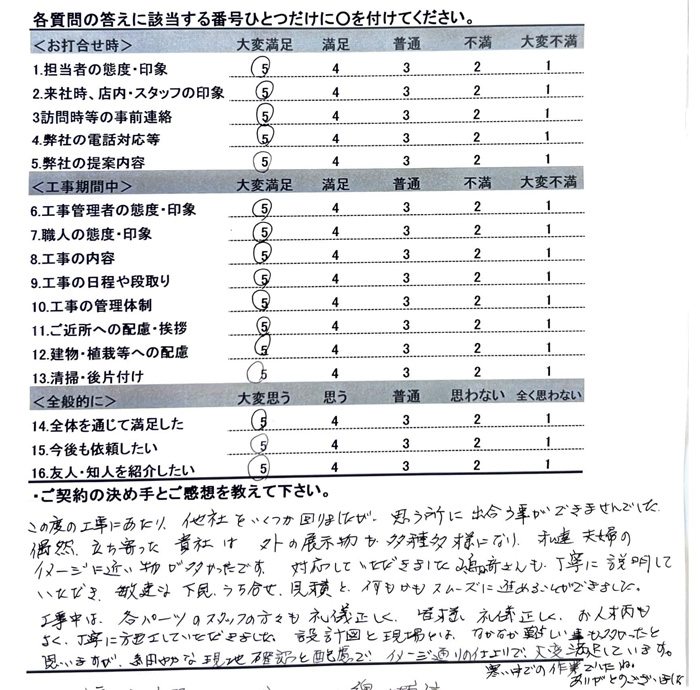 各質問の答えに該当する番号ひとつだけに〇を付けてください。
＜お打合せ時＞ 大変満足 満足 普通 不満 大変不満
1.担当者の態度・印象 5 4 3 2 1
2.来社時、店内・スタッフの印象 5 4 3 2 1
3訪問時等の事前連絡 5 4 3 2 1
4.弊社の電話対応等 5 4 3 2 1
5.弊社の提案内容 5 4 3 2 1
＜工事期間中＞ 大変満足 満足 普通 不満 大変不満
6.工事管理者の態度・印象 5 4 3 2 1
7.職人の態度・印象 5 4 3 2 1
8.工事の内容 5 4 3 2 1
9.工事の日程や段取り 5 4 3 2 1
10.工事の管理体制 5 4 3 2 1
11.ご近所への配慮・挨拶 5 4 3 2 1
12.建物・植栽等への配慮 5 4 3 2 1
13.清掃・後片付け 5 4 3 2 1
＜全般的に＞ 大変思う 思う 普通 思わない 全く思わない
14.全体を通じて満足した 5 4 3 2 1
15.今後も依頼したい 5 4 3 2 1
16.友人・知人を紹介したい 5 4 3 2 1
・ご契約の決め手とご感想を教えて下さい。
この度の工事にあたり、他社をいくつか回りましたが、思う所に出合う事ができませんでした。
偶然、立ち寄った貴社は外の展示物が多種多様になり、私達夫婦の
イメージに近い物が多かったです。対応していただきました さんも、丁寧に説明して
いただき、 打ち合せ、見積と、何もかもスムーズに進めることができました。
工事中は、各パーツのスタッフの方々も礼儀正しく、皆様、礼儀正しく、お人柄も
よく、丁寧に施工していただきました。設計図と現場とは、なかなか難しい事も多かったと
思いますが、細やかな現地確認と配慮で、イメージ通りの仕上りで、大変満足しています。
寒い中での作業でしたね。
ありがとうございました